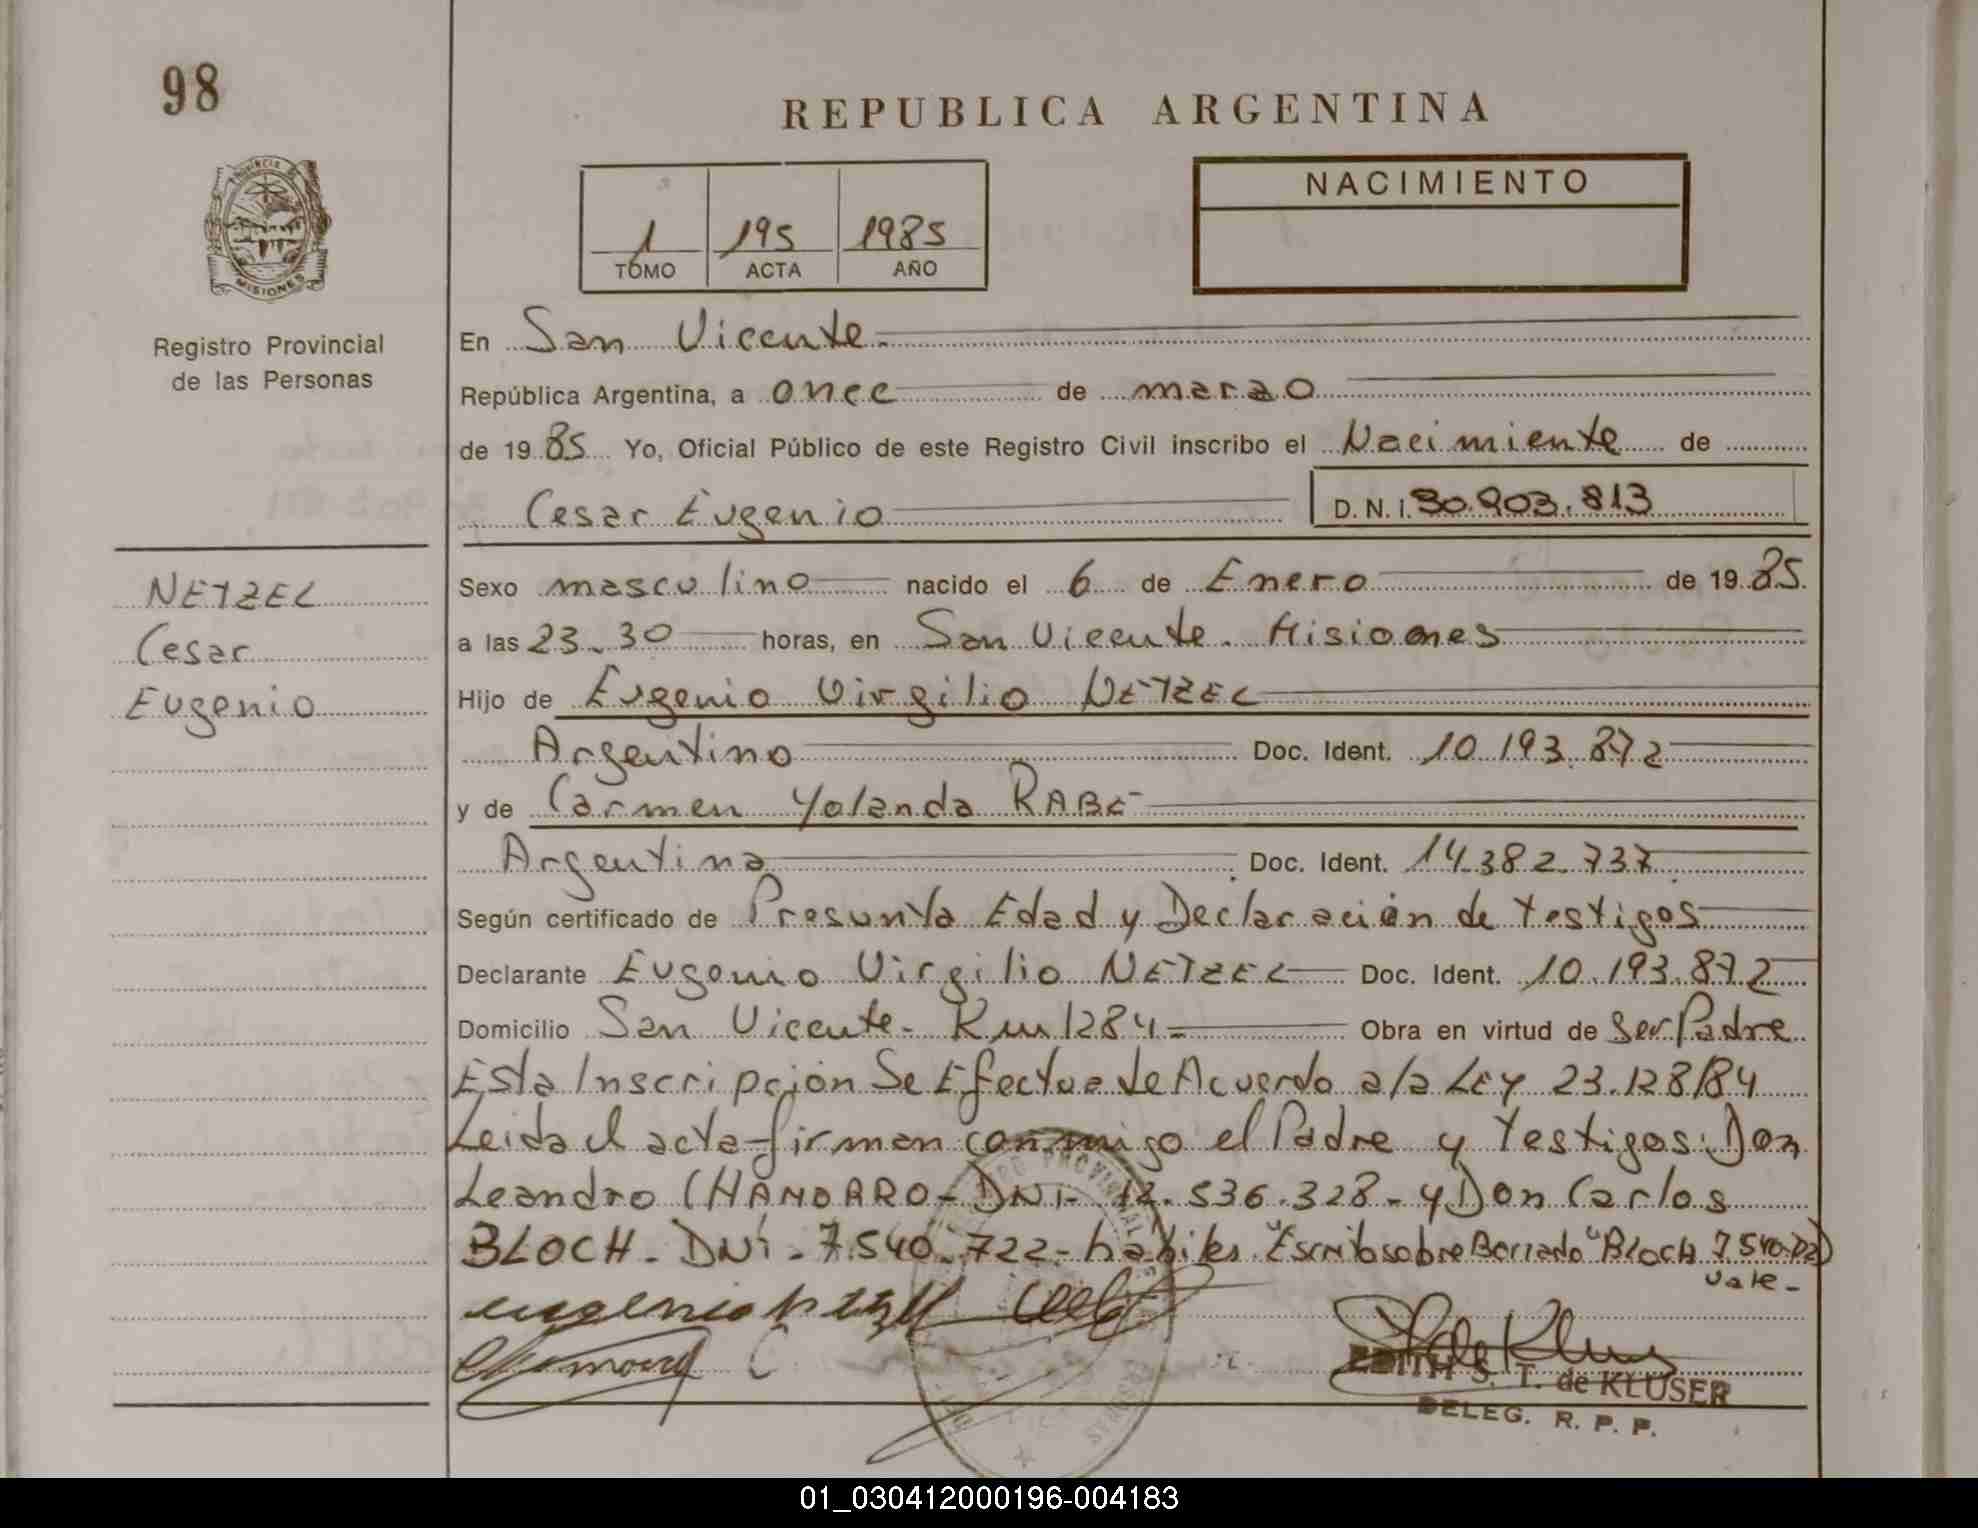 98
REPUBLICA ARGENTINA
PROVINCIA DE
MISIONES
1 195 1985
TOMO ACTA AÑO
NACIMIENTO
Registro Provincial
de las Personas
En San Vicente.
República Argentina, a once de marzo
de 1985 Yo, Oficial Público de este Registro Civil inscribo el Nacimiento de
Cesar Eugenio D. N. I. 30.903.813
NETZEL
Cesar
Eugenio
Sexo masculino nacido el 6 de Enero de 1985.
a las 23.30 horas, en San Vicente. Misiones
Hijo de Eugenio Virgilio NETZEL
Argentino Doc. Ident. 10.193.872
y de Carmen Yolanda RABE
Argentina Doc. Ident. 14.382.737
Según certificado de Presunta Edad y Declaración de testigos
Declarante Eugenio Virgilio NETZEL Doc. Ident. 10.193.872
Domicilio San Vicente - Km 1284 - Obra en virtud de Ser Padre
Esta Inscripción Se Efectua de Acuerdo a la LEY 23.128/84
Leida el acta firman conmigo el Padre y testigos: Don
Leandro CHAMORRO - DNI - 12.536.328 - y Don Carlos
BLOCH - DNI - 7.540.722 - habiles "Escrito sobre Borrado" Bloch 7.540.722
Vale -
EDITH S. T. de KLUSER
DELEG. R. P. P.
01_030412000196-004183